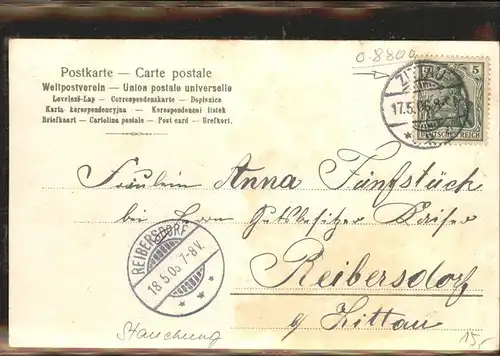 0.880
Postkarte — Carte postale
Weltpostverein — Union postale universelle
Levelező-Lap — Correspondenzkarte — Dopisnice
Karta korespondencyjna — Korespondenčni listek
Briefkaart — Cartolina postale — Post card — Brefkort.
ZITTAU
17.5.05
5
DEUTSCHES REICH
Fräulein Anna Fünfstück
bei Herrn Gutsbesitzer Kaiser
REIBERSDORF
18.5.05 7-8V.
Reibersdorf
b/ Zittau
Stauchung
15,-